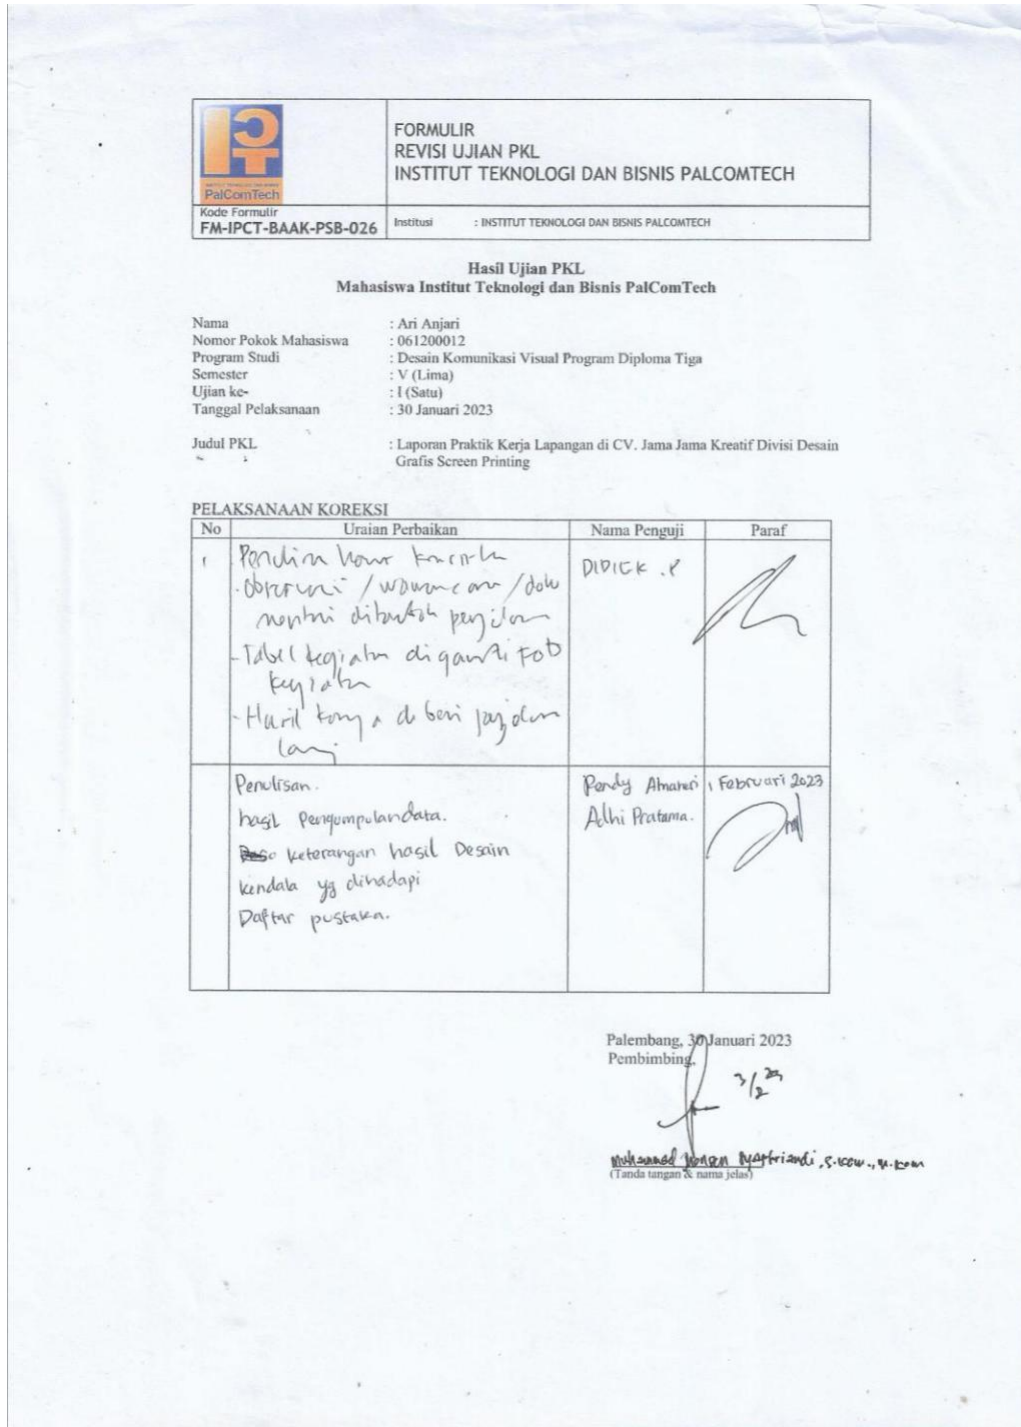 PalComTech
FORMULIR
REVISI UJIAN PKL
INSTITUT TEKNOLOGI DAN BISNIS PALCOMTECH
Kode Formulir
FM-IPCT-BAAK-PSB-026
Institusi : INSTITUT TEKNOLOGI DAN BISNIS PALCOMTECH
Hasil Ujian PKL
Mahasiswa Institut Teknologi dan Bisnis PalComTech
Nama : Ari Anjari
Nomor Pokok Mahasiswa : 061200012
Program Studi : Desain Komunikasi Visual Program Diploma Tiga
Semester : V (Lima)
Ujian ke- : I (Satu)
Tanggal Pelaksanaan : 30 Januari 2023
Judul PKL : Laporan Praktik Kerja Lapangan di CV. Jama Jama Kreatif Divisi Desain
Grafis Screen Printing
PELAKSANAAN KOREKSI
No Uraian Perbaikan Nama Penguji Paraf
1
DIDICK .P
- Tabel kegiatan diganti Foto
kegiatan
- Hasil
Penulisan.
hasil Pengumpulan data.
keterangan hasil Desain
kendala yg dihadapi
Daftar pustaka.
Pendy
Adhi Pratama.
1 Februari 2023
Palembang, 30 Januari 2023
Pembimbing,
3/2 23
Muhammad S.Kom., M.Kom
(Tanda tangan & nama jelas)